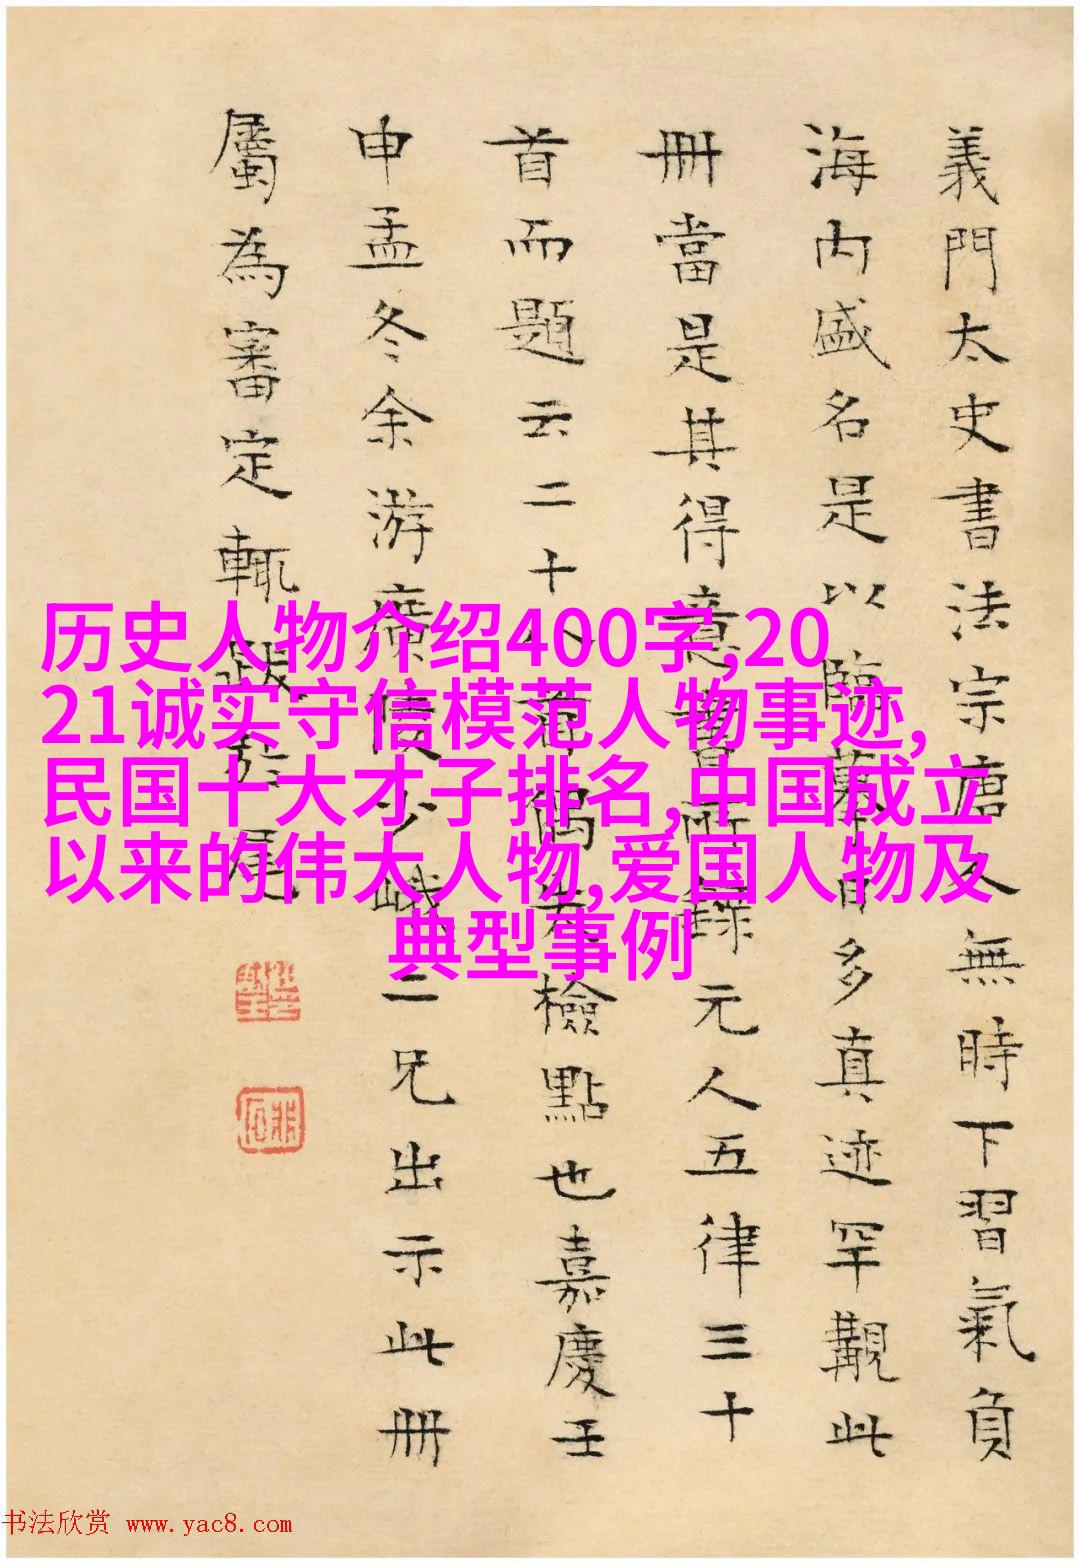 義門太史書法宗唐人無時下習氣負
海内盛名是以臨摹日多真迹罕覯此
冊當是其得意書所錄元人五律三十
首而題云二十八首偶失檢點也嘉慶壬
申孟冬余游廣陵少峨二兄出示此冊
屬為審定輒跋於尾
历史人物介绍400字,20
21诚实守信模范人物事迹,
民国十大才子排名,中国成立
以来的伟大人物,爱国人物及
典型事例
书法欣赏 www.yac8.com